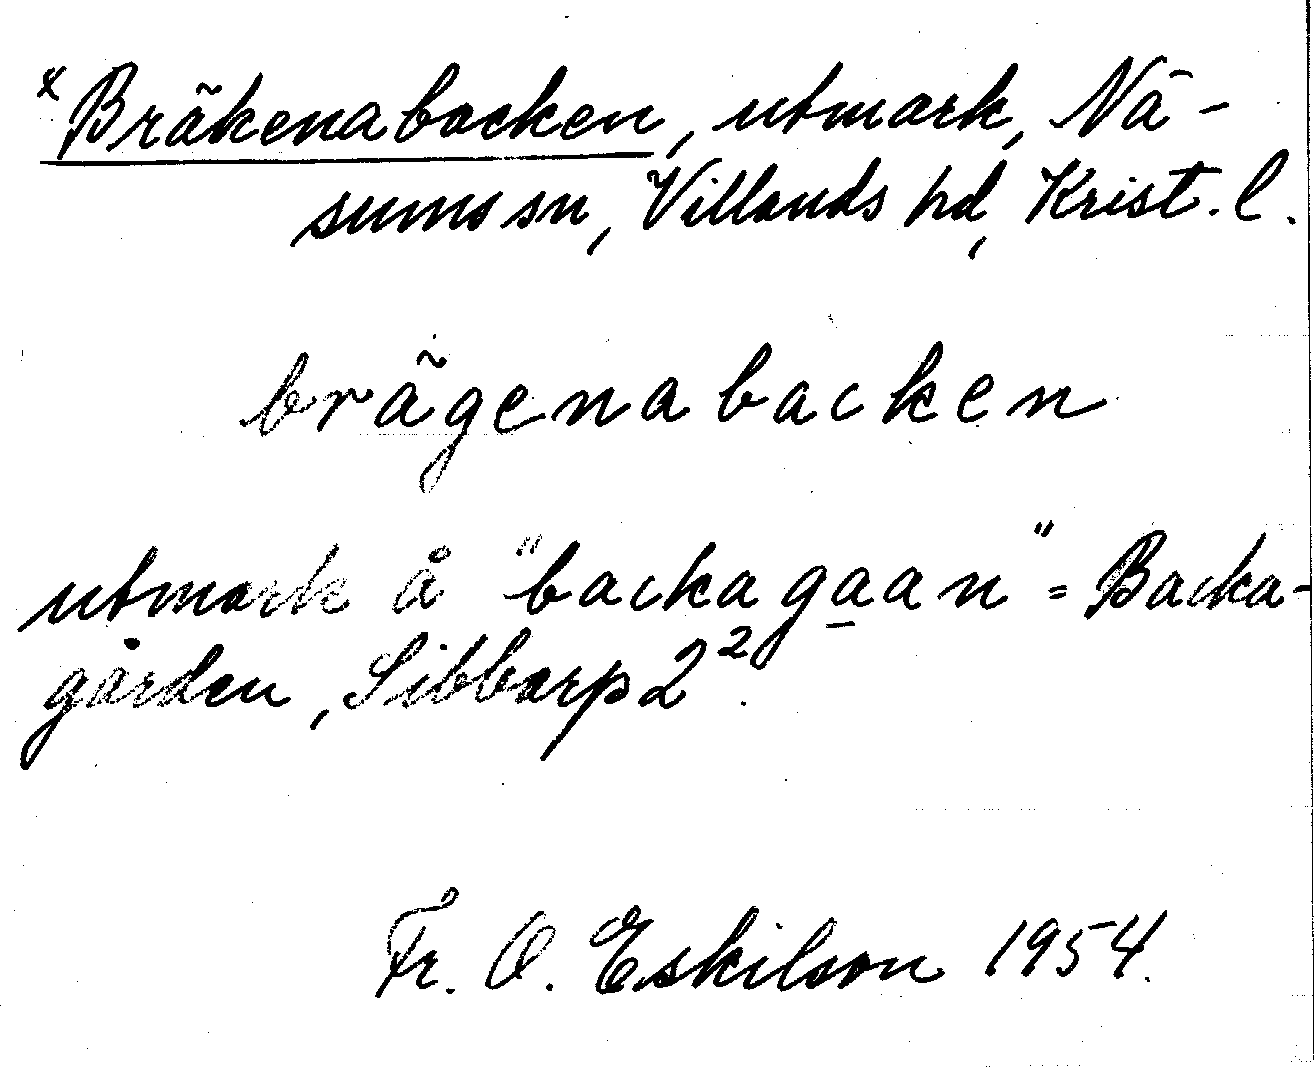 x Bräkenabacken, utmark, Nä-
sums sn, Villands hd, Krist. l.
brägenabacken
utmark å "backagaan" = Backa-
gården, Sibbarp 2².
Fr. O. Eskilson 1954.